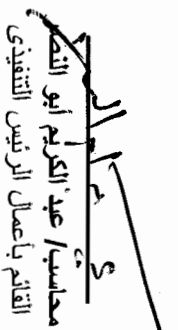 محاسب/ عبد الكريم أبو النصر
القائم بأعمال الرئيس التنفيذي